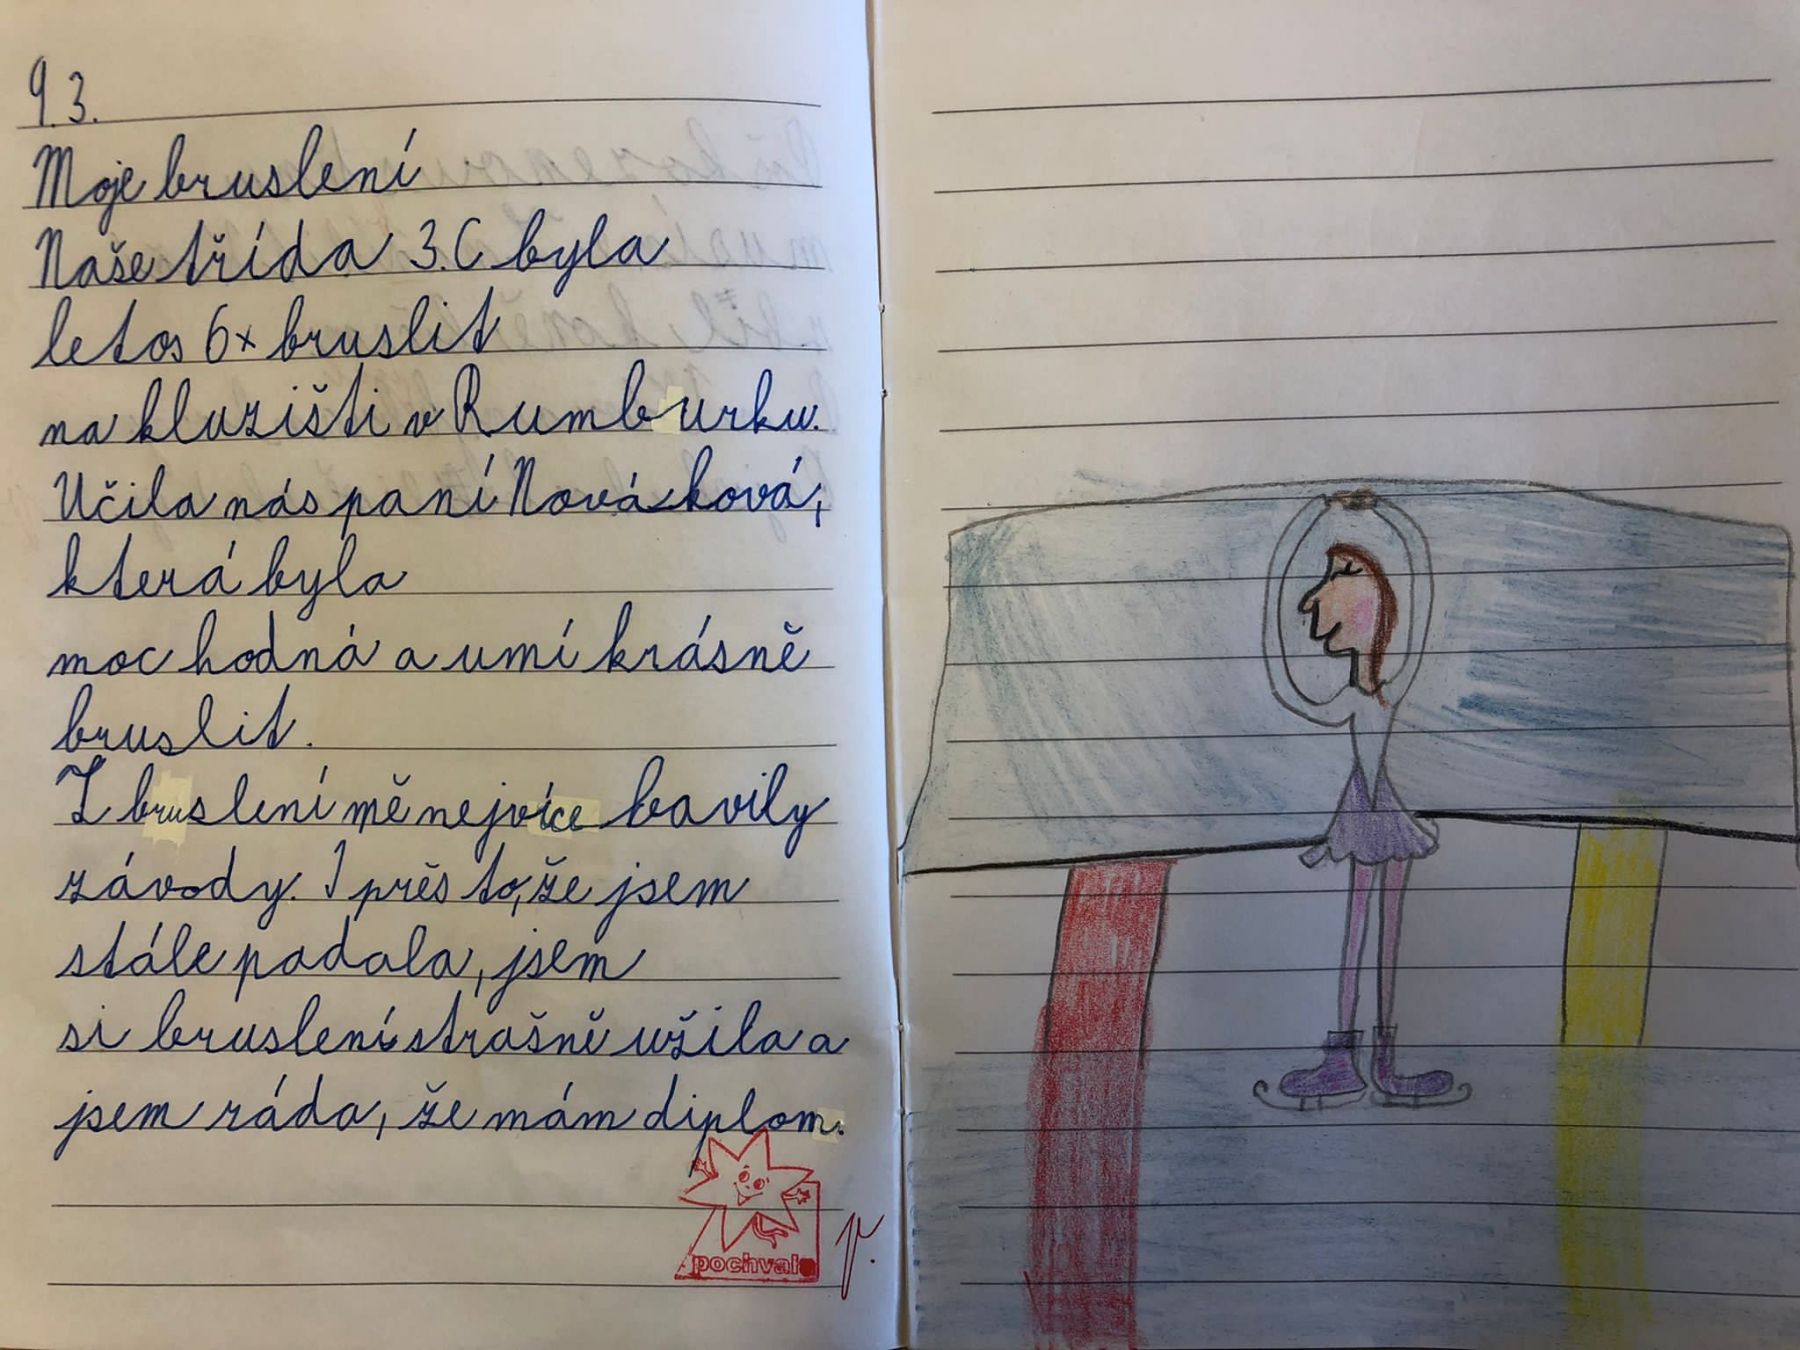 9.3.
Moje bruslení
Naše třída 3.C byla
letos 6x bruslit
na kluzišti v Rumburku.
Učila nás paní Nováčková,
která byla
moc hodná a umí krásně
bruslit.
Z bruslení mě nejvíce bavily
závody. I přěs to, že jsem
stále padala, jsem
si bruslení strašně užila a
jsem ráda, že mám diplom.
pochvala